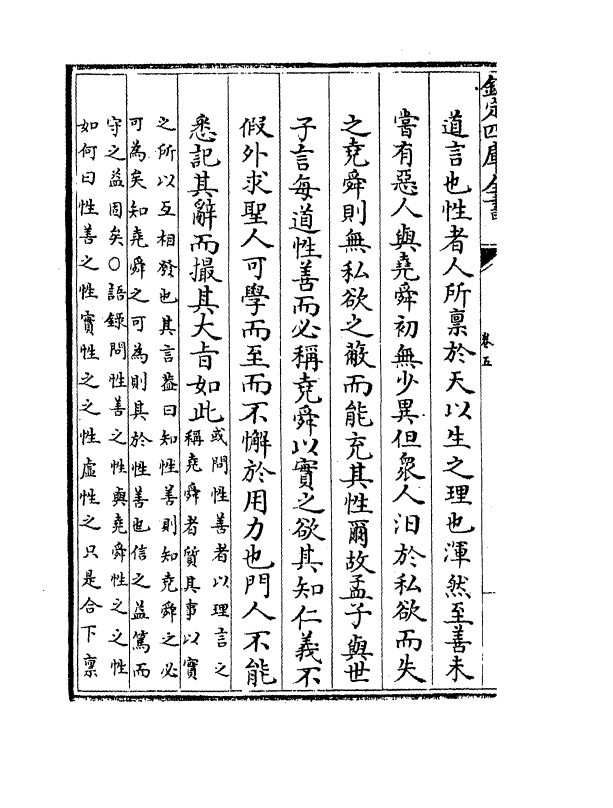 欽定四庫全書
卷五
道言也性者人所稟於天以生之理也渾然至善未
嘗有惡人與堯舜初無少異但衆人汩於私欲而失
之堯舜則無私欲之蔽而能充其性爾故孟子與世
子言每道性善而必稱堯舜以實之欲其知仁義不
假外求聖人可學而至而不懈於用力也門人不能
悉記其辭而撮其大旨如此
或問性善者以理言之
稱堯舜者質其事以實
之所以互相發也其言蓋曰知性善則知堯舜之必
可為矣知堯舜之可為則其於性善也信之益篤而
守之益固矣○語録問性善之性與堯舜性之之性
如何曰性善之性實性之之性虛性之只是合下稟